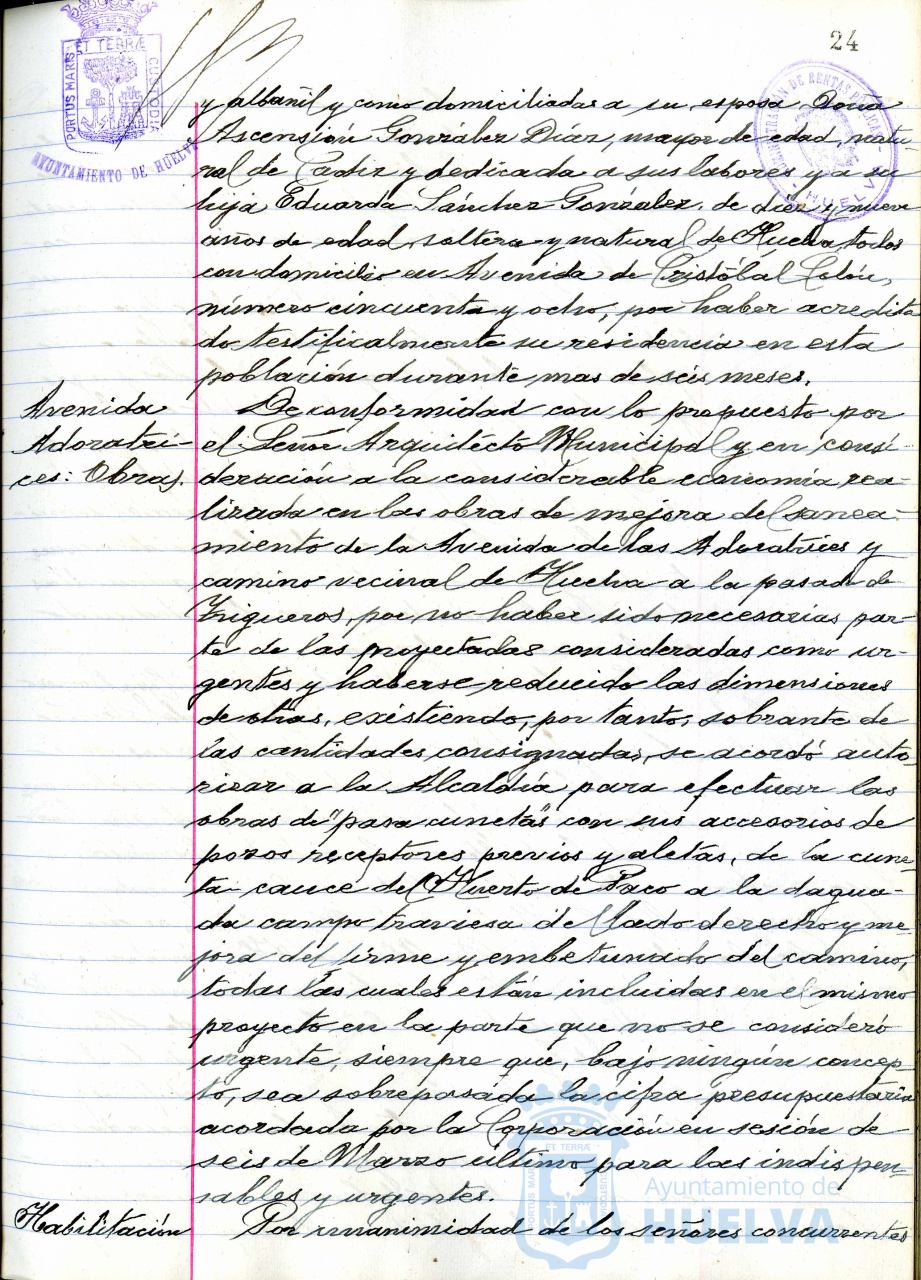 24
PORTUS MARIS ET TERRÆ CUSTODIA
AYUNTAMIENTO DE HUELVA
ADMINISTRACIÓN DE RENTAS PÚBLICAS
HUELVA
y albañil y como domiciliadas a su esposa Doña
Ascensión González Díaz, mayor de edad, natu-
ral de Cádiz y dedicada a sus labores y a su
hija Eduarda Sánchez González, de diez y nueve
años de edad, soltera y natural de Huelva todos
con domicilio en Avenida de Cristóbal Colón,
número cincuenta y ocho, por haber acredita
do testificalmente su residencia en esta
población durante mas de seis meses.
Avenida
Adoratri-
ces: Obras.
De conformidad con lo propuesto por
el Señor Arquitecto Municipal y en consi-
deración a la considerable economía rea-
lizada en las obras de mejora del sanea-
miento de la Avenida de las Adoratrices y
camino vecinal de Huelva a la pasada de
Trigueros, por no haber sido necesarias par-
te de las proyectadas consideradas como ur-
gentes y haberse reducido las dimensiones
de otras, existiendo, por tanto, sobrante de
las cantidades consignadas, se acordó auto-
rizar a la Alcaldía para efectuar las
obras de "pasa cunetas" con sus accesorios de
pozos receptores previos y aletas, de la cune
ta cauce del Huerto de Paco a la
da campo traviesa del lado derecho y me-
jora del firme y embetunado del camino,
todas las cuales están incluidas en el mismo
proyecto en la parte que no se consideró
urgente, siempre que, bajo ningún concep-
to, sea sobrepasada la cifra presupuestaria
acordada por la Corporación en sesión de
seis de Marzo último para las indispen-
sables y urgentes.
Habilitación
Por unanimidad de los señores concurrentes
Ayuntamiento de
HUELVA